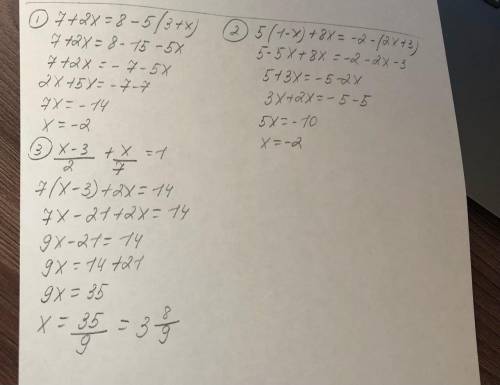 ① 7+2x=8-5(3+x)
7+2x=8-15-5x
7+2x=-7-5x
2x+5x=-7-7
7x=-14
x=-2
② 5(1-x)+8x=-2-(2x+3)
5-5x+8x=-2-2x-3
5+3x=-5-2x
3x+2x=-5-5
5x=-10
x=-2
③ (x-3)/2 + x/7 = 1
7(x-3)+2x=14
7x-21+2x=14
9x-21=14
9x=14+21
9x=35
x = 35/9 = 3 8/9